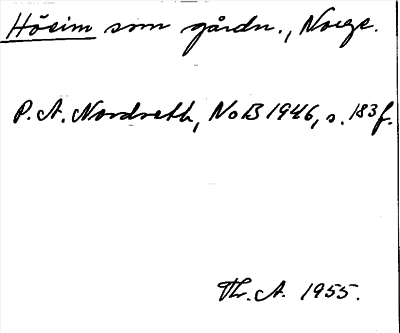 Höeim som gårdn., Norge.
P. A. Nordseth, NoB 1946, s. 183 f.
Th. A. 1955.